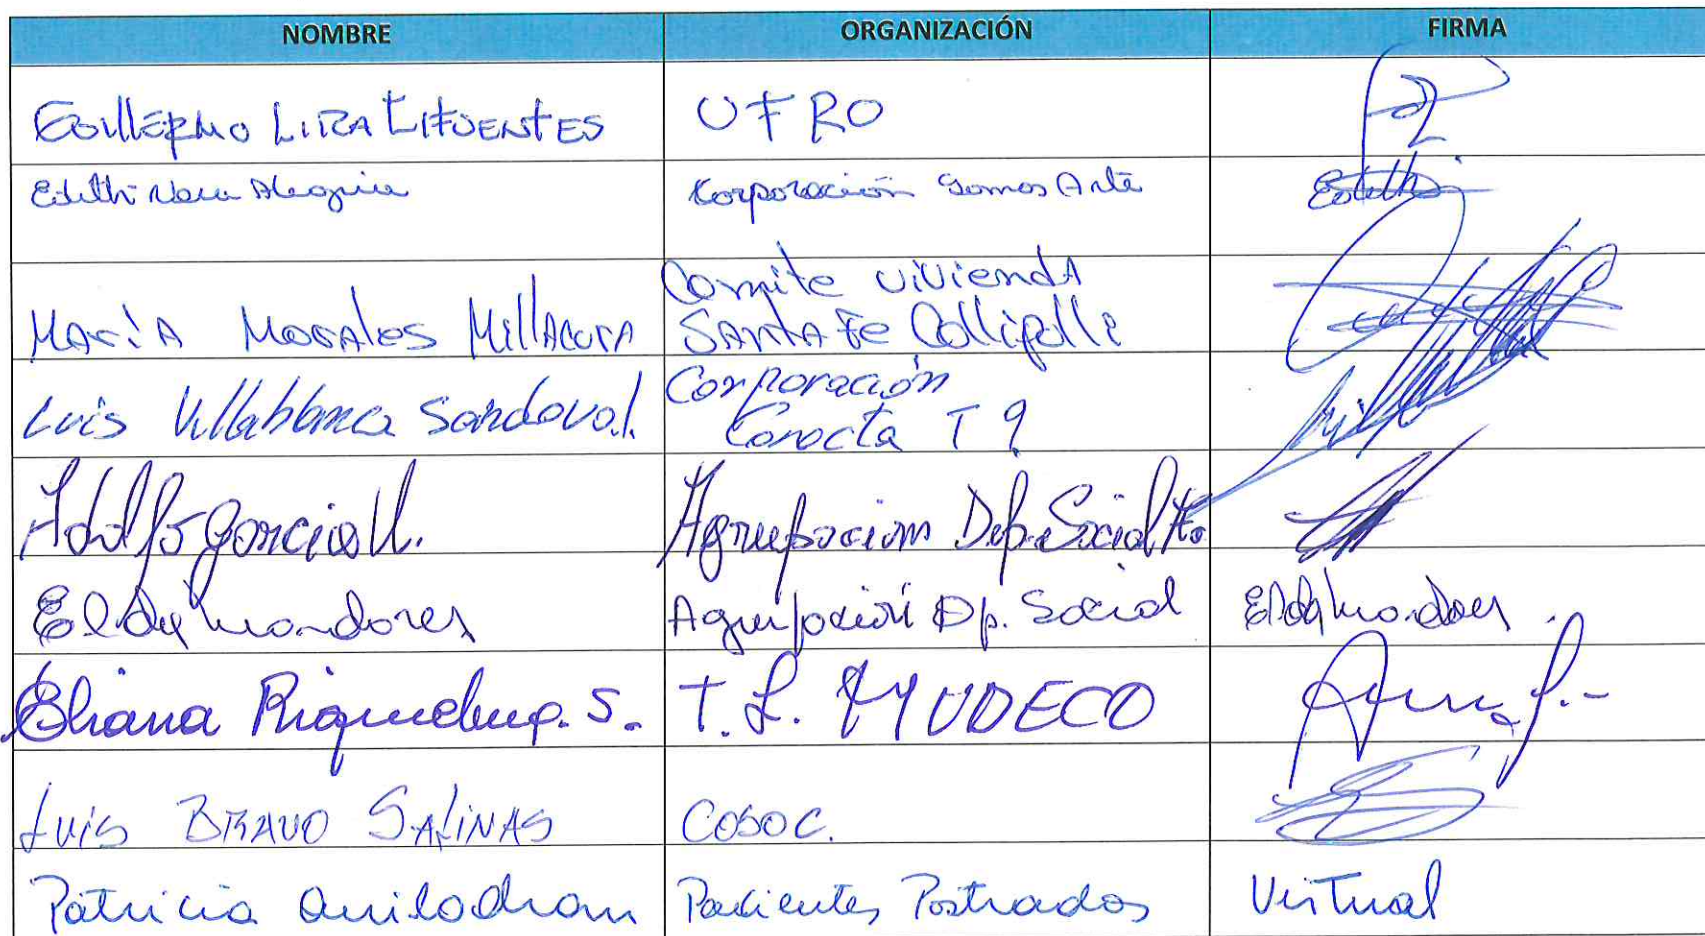 NOMBRE ORGANIZACIÓN FIRMA
GUILLERMO LIRA CIFUENTES UFRO
Edith Vera Alegria Corporación Somos Arte Edith
MARÍA MORALES MILLACURA Comite viviendA SANTA FE Collipulli
Luis Villablanca Sandoval. Corporación Conecta T 9
Adolfo Garcia Agrupacion Dep. Social
Agrupación Dp. Social
Eliana Riquelme. S. T. S. MUDECO
Luis BRAVO SALINAS COSOC.
Patricia Quilodran Pacientes Postrados Virtual